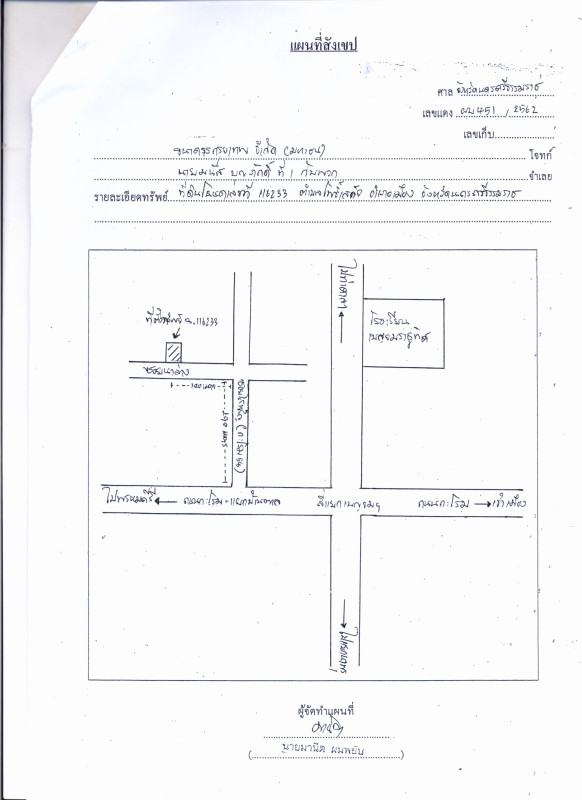 แผนที่สังเขป
ศาล จังหวัดนครศรีธรรมราช
เลขแดง ผบ 451 / 2562
เลขเก็บ
ธนาคารกรุงเทพ จำกัด (มหาชน) โจทก์
ที่ 1 กับพวก จำเลย
รายละเอียดทรัพย์ ที่ดินโฉนดเลขที่ 116233 ตำบลโพธิ์เสด็จ อำเภอเมือง จังหวัดนครศรีธรรมราช
ไปท่าศาลา
โรงเรียน
เบญจมราชูทิศ
ที่ตั้งทรัพย์ ฉ.116233
100 เมตร
190 เมตร
ไปพรหมคีรี
สี่แยกเบญจมฯ
ถนนกะโรม
เข้าเมือง
ผู้จัดทำแผนที่
(นายมานิต ผมพยับ)